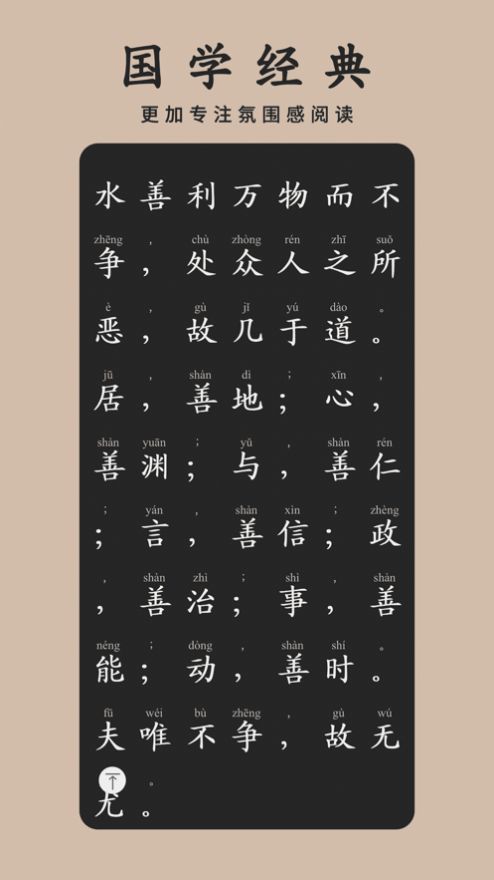 国学经典
更加专注氛围感阅读
水善利万物而不
zhēng , chù zhòng rén zhī suǒ
争，处众人之所
è , gù jī yú dào 。
恶，故几于道。
jū , shàn dì ; xīn ,
居，善地；心，
shàn yuān ; yǔ , shàn rén
善渊；与，善仁
; yán , shàn xìn ; zhèng
；言，善信；政
, shàn zhì ; shì , shàn
，善治；事，善
néng ; dòng , shàn shí 。
能；动，善时。
fū wéi bù zhēng , gù wú
夫唯不争，故无
。
尤。